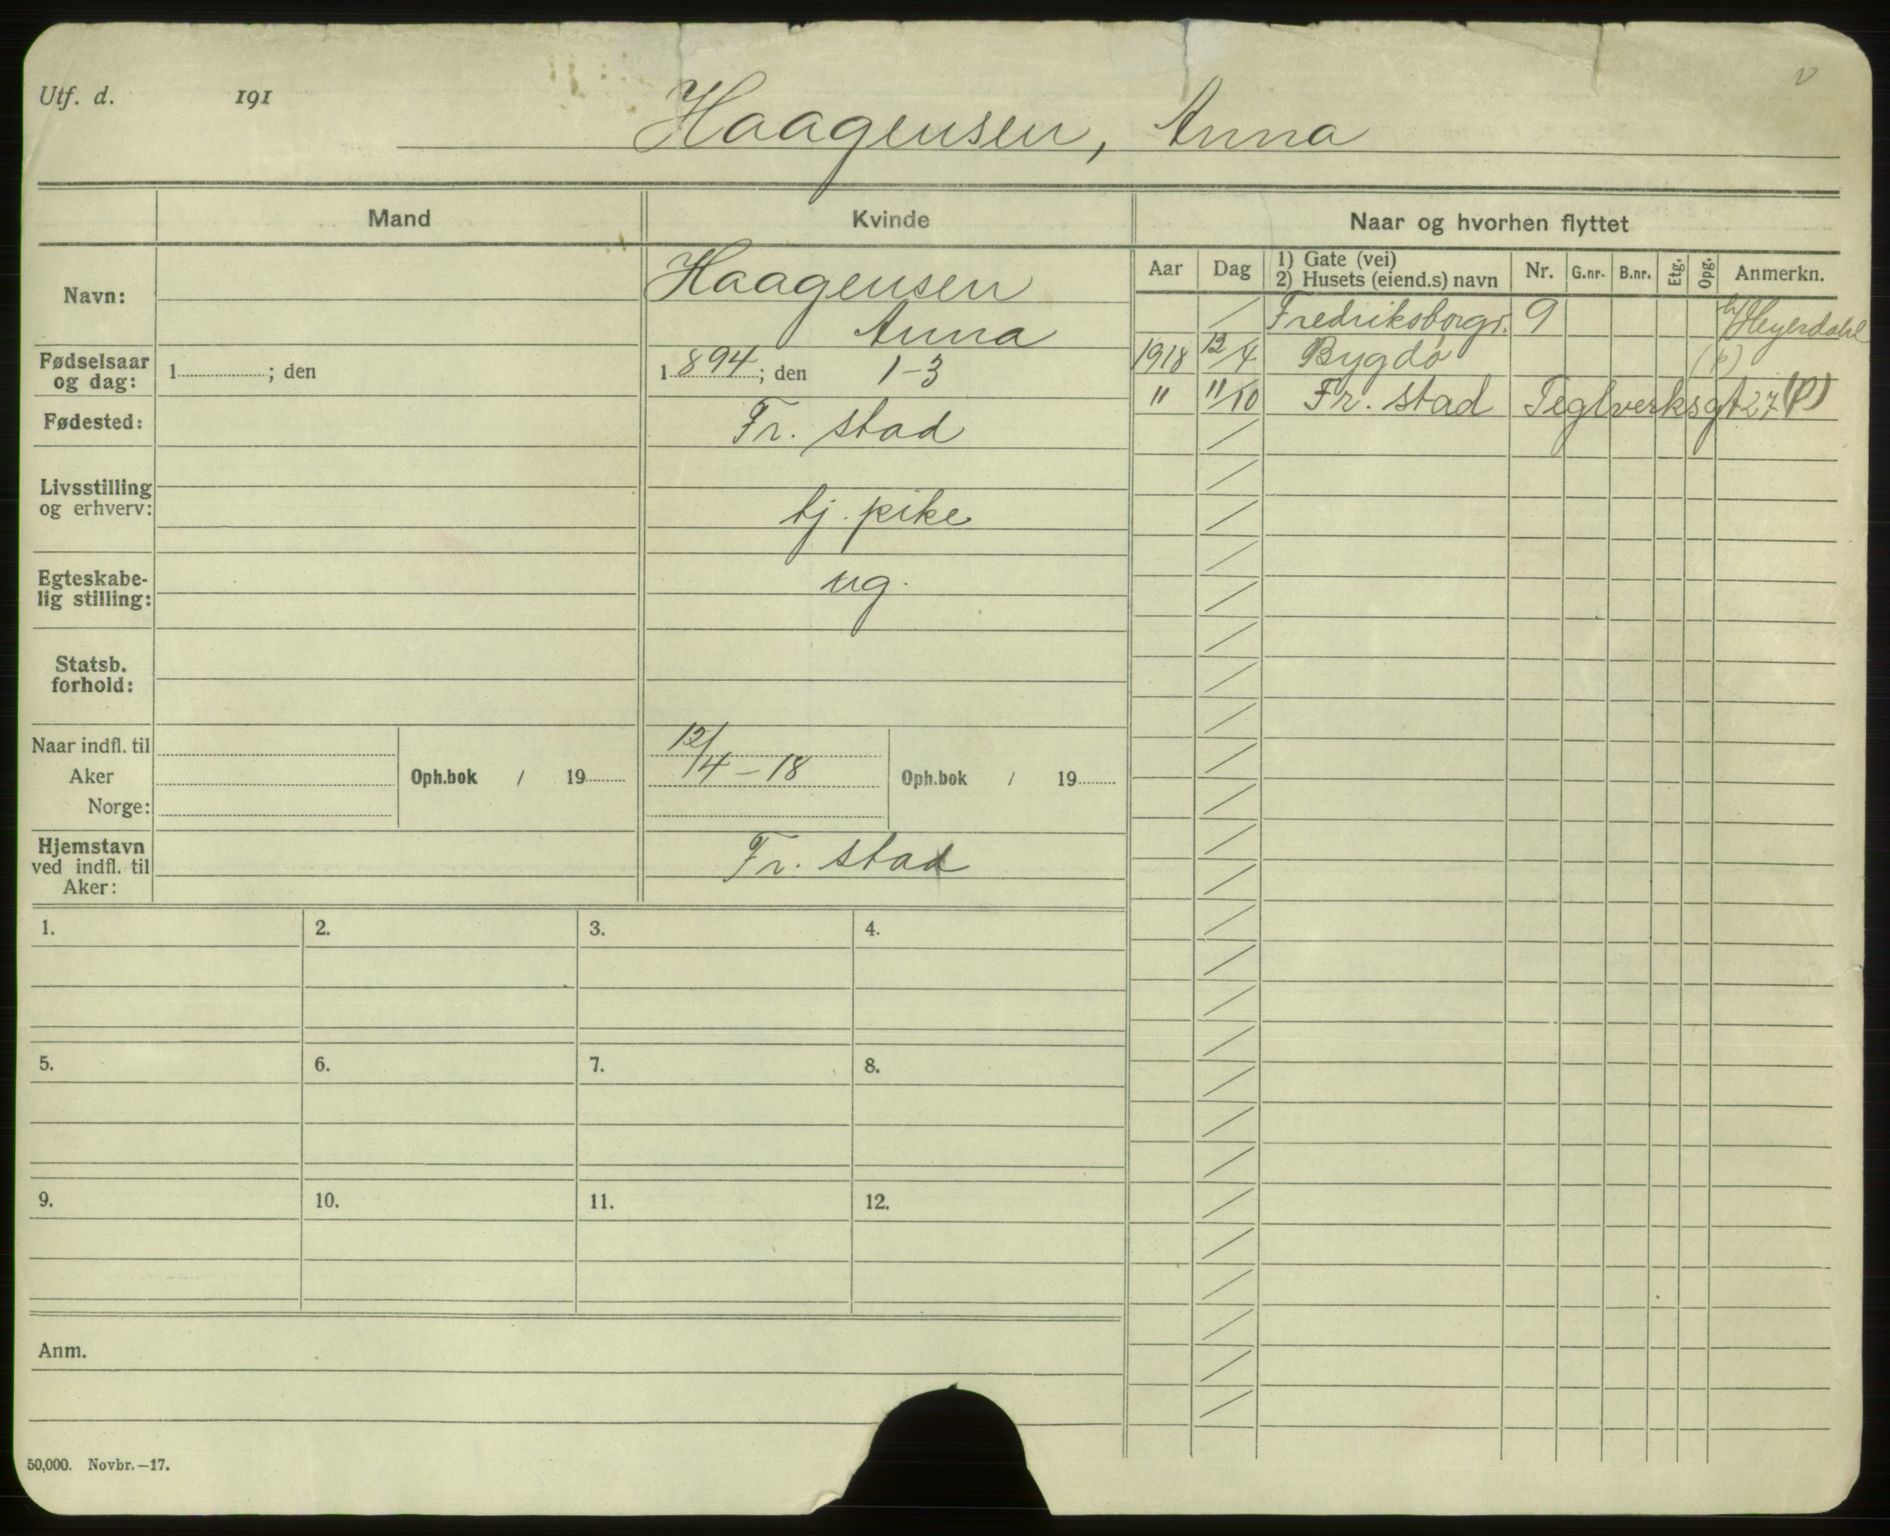 Utf. d. 191
Haagensen, Anna
Mand
Kvinde
Naar og hvorhen flyttet
Navn:
Haagensen
Anna
Fødselsaar og dag:
1 ; den
1 894 ; den 1-3
Fødested:
Fr. stad
Livsstilling og erhverv:
tj. pike
Egteskabe-
lig stilling:
ug.
Statsb.
forhold:
Naar indfl. til
Aker
Norge:
Oph.bok / 19
12/4-18
Oph.bok / 19
Hjemstavn
ved indfl. til
Aker:
Fr. stad
Aar Dag 1) Gate (vei) 2) Husets (eiend.s) navn Nr. G.nr. B.nr. Etg. Opg. Anmerkn.
/ Fredriksborgv. 9 Heyerdahl
1918 12/4 Bygdø (p)
" 11/10 Fr. stad Teglverksgt 27 (P)
1. 2. 3. 4.
5. 6. 7. 8.
9. 10. 11. 12.
Anm.
50,000. Novbr.-17.